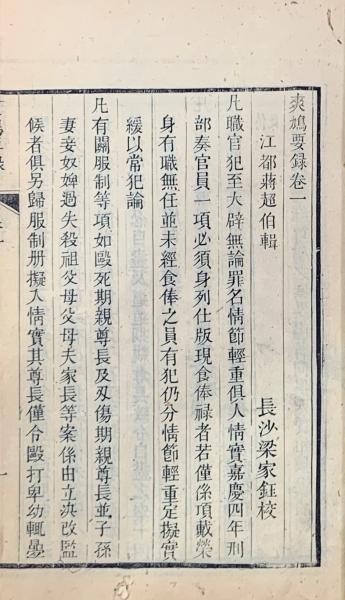 爽鳩要録卷一
江都蔣超伯輯
長沙梁家鈺校
凡職官犯至大辟無論罪名情節輕重俱入情實嘉慶四年刑
部奏官員一項必須身列仕版現食俸祿者若僅係頂戴榮
身有職無任並未經食俸之員有犯仍分情節輕重定擬實
緩以常犯論
凡有關服制等項如毆死期親尊長及刃傷期親尊長並子孫
妻妾奴婢過失殺祖父母父母夫家長等案係由立决改監
候者俱另歸服制册擬入情實其尊長僅令毆打卑幼輒疊